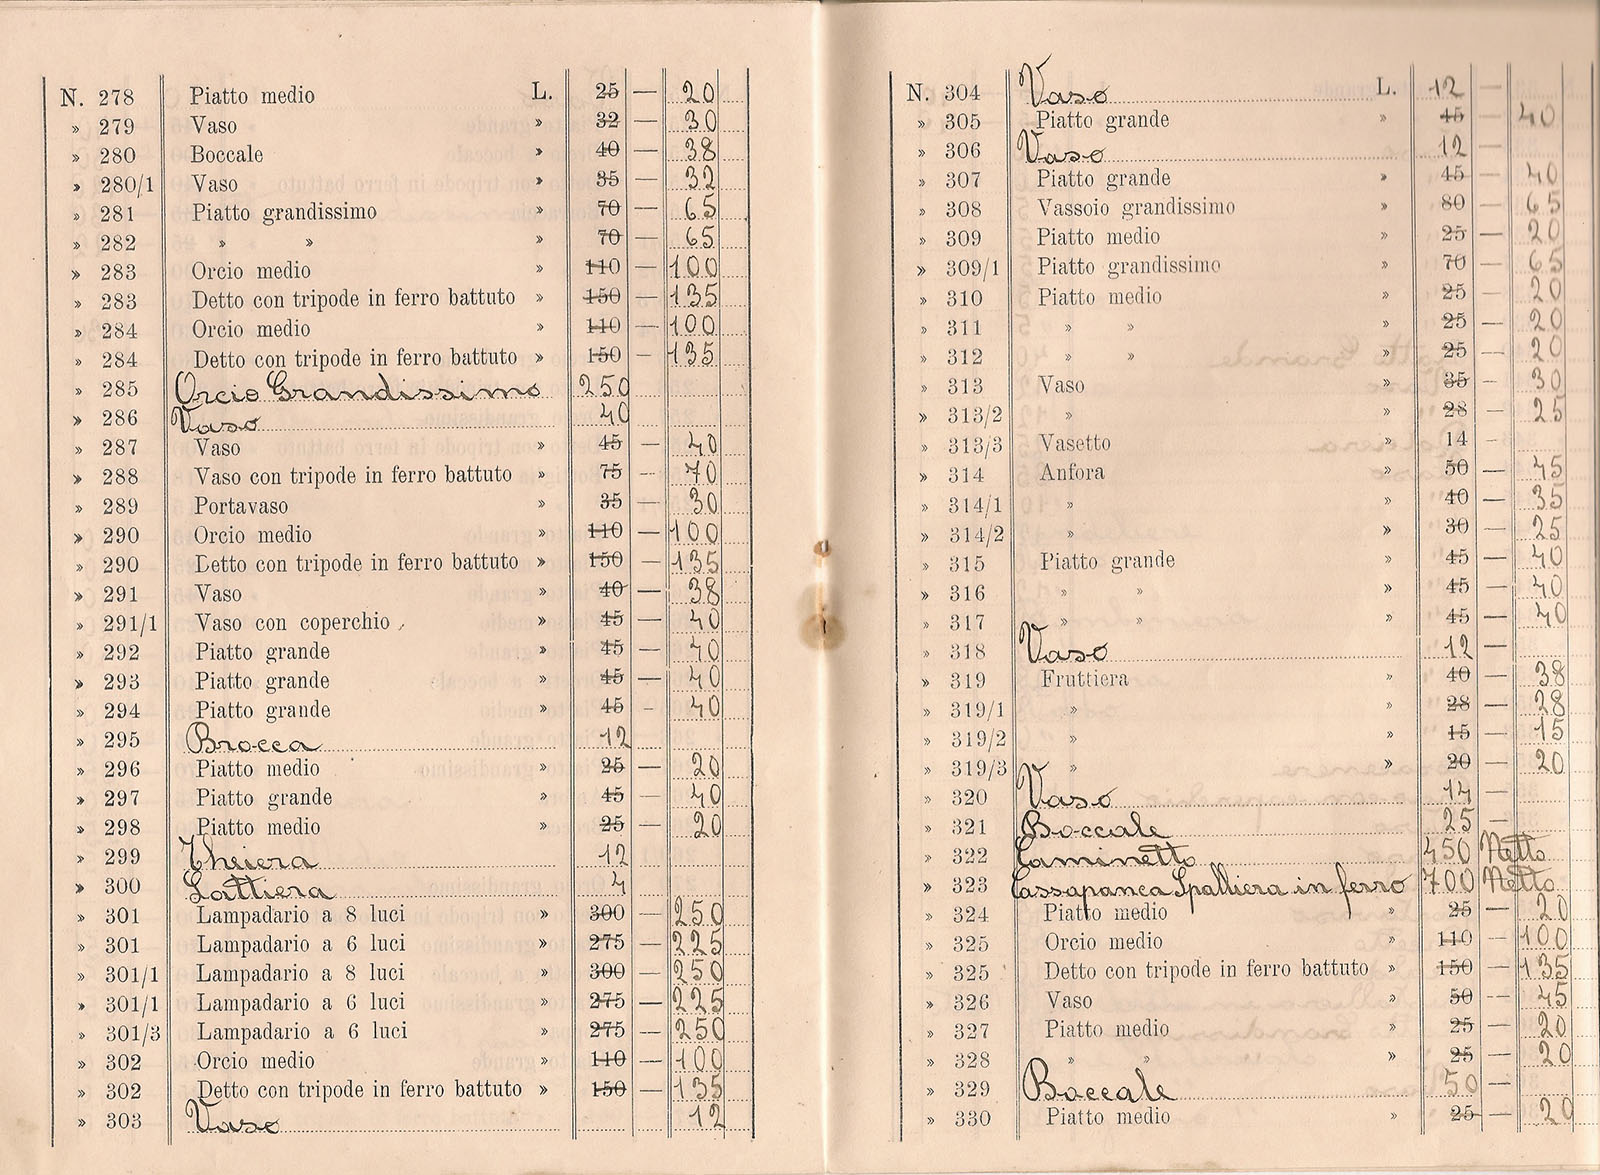 N. 278 Piatto medio L. 25 — 20
» 279 Vaso » 32 — 30
» 280 Boccale » 40 — 38
» 280/1 Vaso » 35 — 32
» 281 Piatto grandissimo » 70 — 65
» 282 » » » 70 — 65
» 283 Orcio medio » 110 — 100
» 283 Detto con tripode in ferro battuto » 150 — 135
» 284 Orcio medio » 110 — 100
» 284 Detto con tripode in ferro battuto » 150 — 135
» 285 Orcio Grandissimo 250
» 286 Vaso 40
» 287 Vaso » 45 — 40
» 288 Vaso con tripode in ferro battuto » 75 — 70
» 289 Portavaso » 35 — 30
» 290 Orcio medio » 110 — 100
» 290 Detto con tripode in ferro battuto » 150 — 135
» 291 Vaso » 40 — 38
» 291/1 Vaso con coperchio » 45 — 40
» 292 Piatto grande » 45 — 40
» 293 Piatto grande » 45 — 40
» 294 Piatto grande » 45 — 40
» 295 Brocca 12
» 296 Piatto medio » 25 — 20
» 297 Piatto grande » 45 — 40
» 298 Piatto medio » 25 — 20
» 299 Theiera 12
» 300 Lattiera 4
» 301 Lampadario a 8 luci » 300 — 250
» 301 Lampadario a 6 luci » 275 — 225
» 301/1 Lampadario a 8 luci » 300 — 250
» 301/1 Lampadario a 6 luci » 275 — 225
» 301/3 Lampadario a 6 luci » 275 — 250
» 302 Orcio medio » 110 — 100
» 302 Detto con tripode in ferro battuto » 150 — 135
» 303 Vaso 12
N. 304 Vaso L. 12 —
» 305 Piatto grande » 45 — 40
» 306 Vaso 12 —
» 307 Piatto grande » 45 — 40
» 308 Vassoio grandissimo » 80 — 65
» 309 Piatto medio » 25 — 20
» 309/1 Piatto grandissimo » 70 — 65
» 310 Piatto medio » 25 — 20
» 311 » » » 25 — 20
» 312 » » » 25 — 20
» 313 Vaso » 35 — 30
» 313/2 » » 28 — 25
» 313/3 Vasetto » 14 -
» 314 Anfora » 50 — 45
» 314/1 » » 40 — 35
» 314/2 » » 30 — 25
» 315 Piatto grande » 45 — 40
» 316 » » » 45 — 40
» 317 » » » 45 — 40
» 318 Vaso 12 —
» 319 Fruttiera » 40 — 38
» 319/1 » » 28 — 28
» 319/2 » » 15 — 15
» 319/3 » » 20 — 20
» 320 Vaso 14 —
» 321 Boccale 25 —
» 322 Caminetto 450 Netto
» 323 Cassapanca Spalliera in ferro 700 Netto
» 324 Piatto medio » 25 — 20
» 325 Orcio medio » 110 — 100
» 325 Detto con tripode in ferro battuto » 150 — 135
» 326 Vaso » 50 — 45
» 327 Piatto medio » 25 — 20
» 328 » » » 25 — 20
» 329 Boccale 50 —
» 330 Piatto medio » 25 — 20